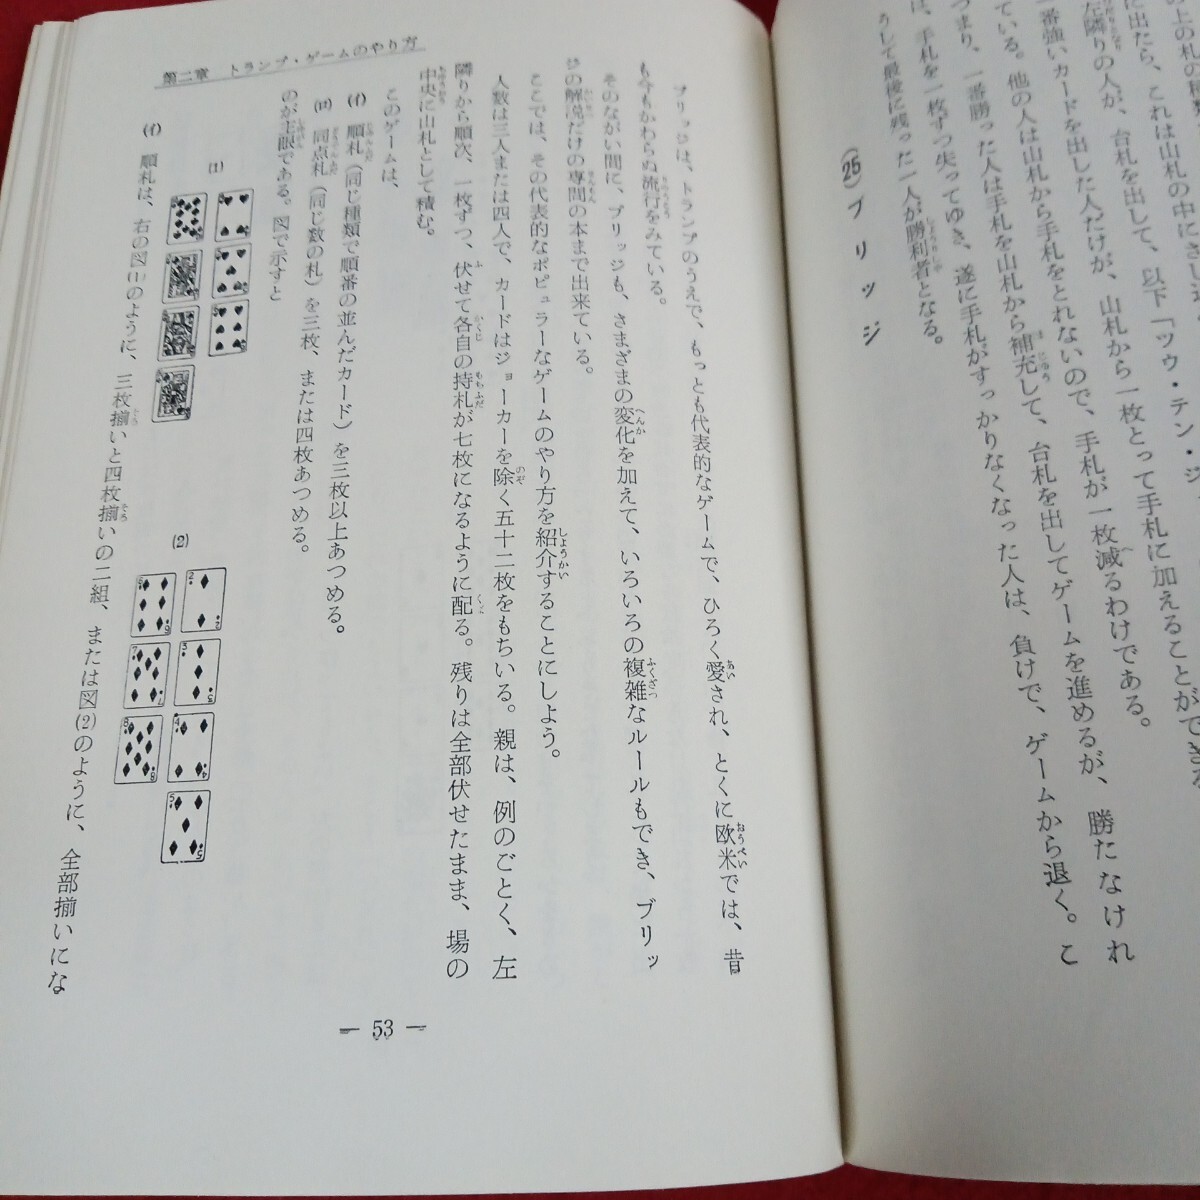 の上の札の種
に出たら、これは山札の中にさし
左隣りの人が、台札を出して、以下「ツゥ・テン・ジ
一番強いカードを出した人だけが、山札から一枚とって手札に加えることができる
ている。他の人は山札から手札をとれないので、手札が一枚減るわけである。
つまり、一番勝った人は手札を山札から補充して、台札を出してゲームを進めるが、勝たなけれ
は、手札を一枚ずつ失ってゆき、遂に手札がすっかりなくなった人は、負けで、ゲームから退く。こ
うして最後に残った一人が勝利者となる。
(25) ブリッジ
ブリッジは、トランプのうえで、もっとも代表的なゲームで、ひろく愛され、とくに欧米では、昔
も今もかわらぬ流行をみている。
そのながい間に、ブリッジも、さまざまの変化を加えて、いろいろの複雑なルールもでき、ブリッ
ジの解説だけの専問の本まで出来ている。
ここでは、その代表的なポピュラーなゲームのやり方を紹介することにしよう。
人数は三人または四人で、カードはジョーカーを除く五十二枚をもちいる。親は、例のごとく、左
隣りから順次、一枚ずつ、伏せて各自の持札が七枚になるように配る。残りは全部伏せたまま、場の
中央に山札として積む。
このゲームは、
(イ) 順札(同じ種類で順番の並んだカード)を三枚以上あつめる。
(ロ) 同点札(同じ数の札)を三枚、または四枚あつめる。
のが主眼である。図で示すと
(1)
(2)
(イ) 順札は、右の図(1)のように、三枚揃いと四枚揃いの二組、または図(2)のように、全部揃いにな
第二章 トランプ・ゲームのやり方
― 53 ―